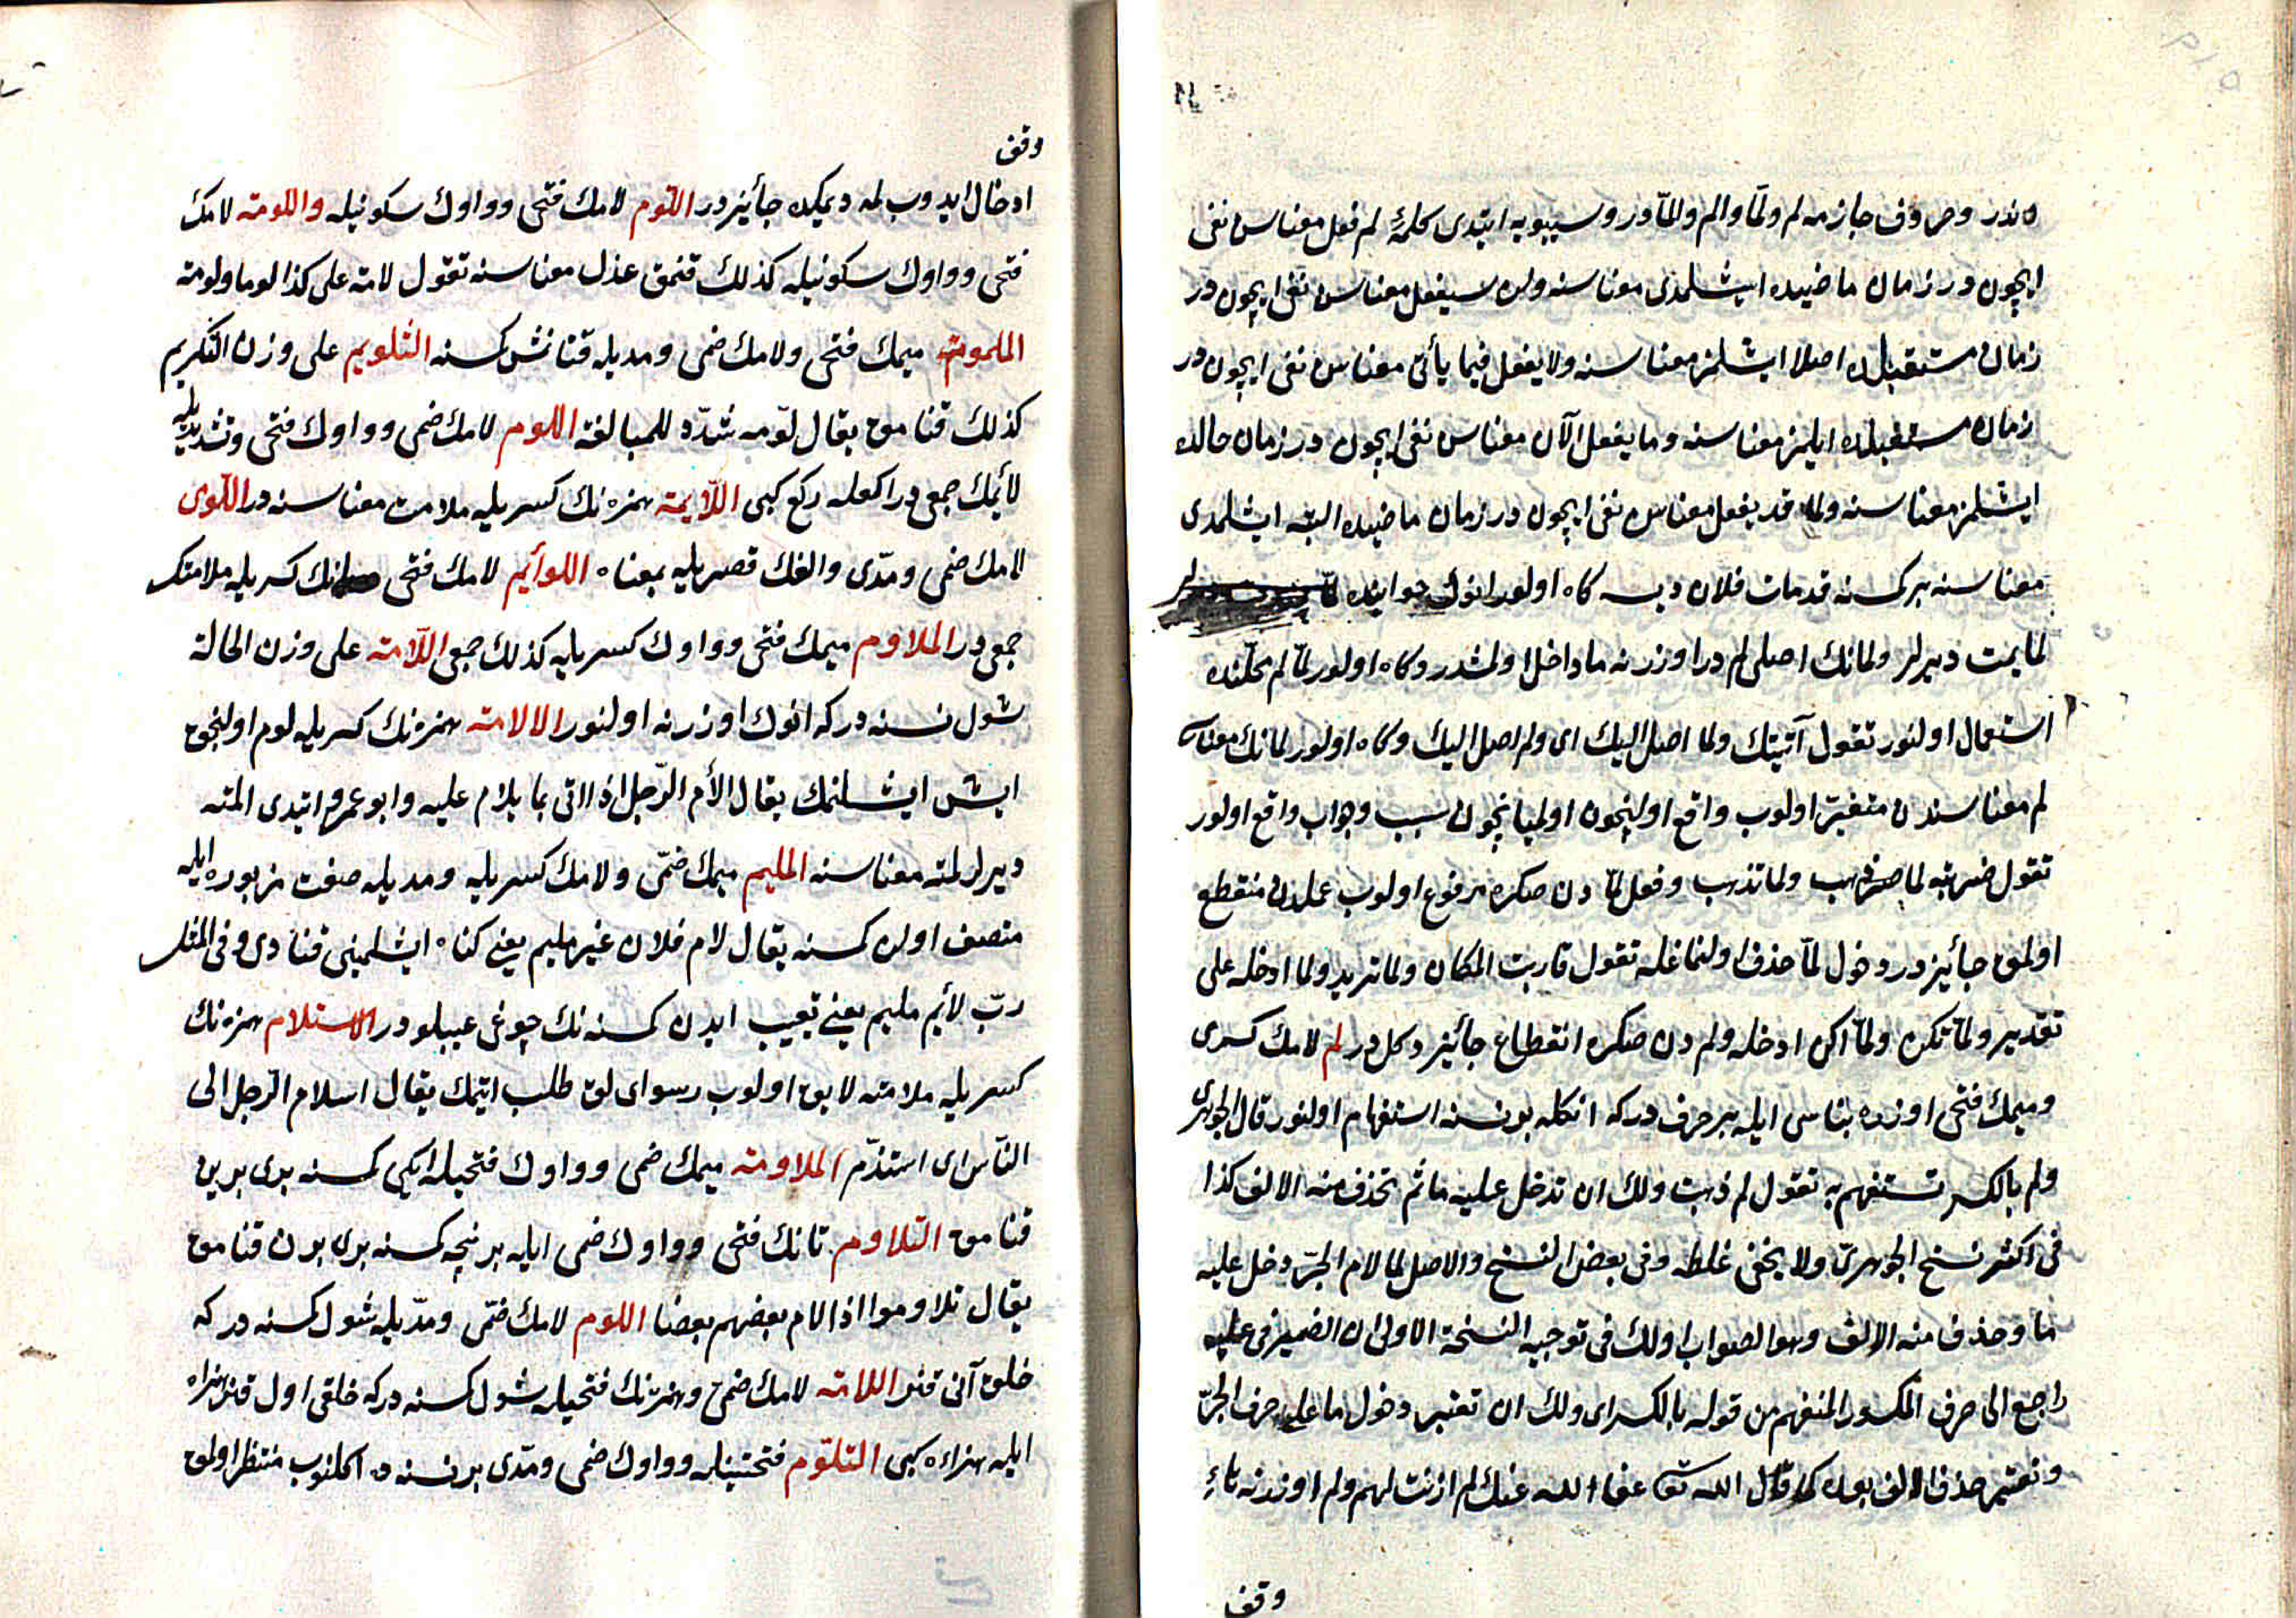 ه ندر وحروف جازمه لم ولمّا والم والمّا در وسيبويه ايتدى كلمۀ لم فعل معناسن نفى
ايچون در زمان ماضيده ايشلمدى معناسنه ولن سيفعل معناسن نفى ايچون در
زمان مستقبلده اصلا ايشلمز معناسنه ولا يفعل فيما يأتى معناسن نفى ايچون در
زمان مستقبلده ايلمز معناسنه وما يفعل الآن معناسن نفى ايچون در زمان حالده
ايشلمز معناسنه ولما قد يفعل معناسن نفى ايچون در زمان ماضيده البته ايشلمدى
معناسنه بر كمسنه قد مات فلان ديسه كاه اولور انوك جوابنده
لما يمت ديرلر ولمانك اصلى لم در اوزرنه ما داخل اولمشدر وكاه اولور لمّا لم محلّنده
استعمال اولنور تقول آتيتك ولما اصل اليك اى ولم اصل اليك وكاه اولور لمانك معناسى
لم معناسندن متغيّر اولوب واقع اولنچون اولميانچون سبب وجواب واقع اولور
تقول ضربته لما ذهب ولما تذهب وفعل لمّا دن صكره مرفوع اولوب عملدن منقطع
اولمق جأيز در دخول لمّا حذف اولنماغله تقول قاربت المكان ولما تريد ولما ادخله على
تقدير ولمّا تكن ولمّا اكن ادخله ولم دن صكره انقطاع جأيز دكل در لم لامك كسرى
وميمك فتحى اوزره بناسى ايله بر حرف در كه انكله بر نسنه استفهام اولنور قال الجوهرى
ولم بالكسر تستفهم به تقول لم ذهبت ولك ان تدخل عليه ما ثم تحذف منه الالف كذا
فى اكثر نسخ الجوهرىّ ولا يخفى غلطه وفى بعض النسخ والاصل لما لام الجرّ دخل عليه
ما وحذف منه الالف وهو الصواب ولك فى توجيه النسخة الاولى ان الضمير فى عليه
راجع الى حرف المكسور المنفهم من قوله بالكسر اى ولك ان تعتبر دخول ما على حرف الجرّ
وتعتبر حذف الالف بعده كما قال الله تعا عفا الله عنك لم اذنت لهم ولم اوزرنه تاء
وقف
وقف
ادخال ايدوب لمه ديمكده جأيز در اللّوم لامك فتحى وواوك سكونيله واللومته لامك
فتحى وواوك سكونيله كذلك قنمق عذل معناسنه تقول لامه على كذا لوما ولومته
الملومته ميمك فتحى ولامك ضمى ومديله قنانمش كمسنه التلويم على وزن التكريم
كذلك قنامق يقال لوّمه شدّد للمبالغة اللوم لامك ضمى وواوك فتحى وتشديديله
لأيمك جمعى در راكعله ركع كبى اللآيمته همزه نك كسريله ملامت معناسنه در اللّوى
لامك ضمى ومدّى والفك قصريله بمعناه اللوأيم لامك فتحى نك كسريله ملامتك
جمعى در الملاوم ميمك فتحى وواوك كسريله كذلك جمعى اللآمته على وزن الحالة
شول نسنه در كه انوك اوزرنه اولنور الالامته همزه نك كسريله لوم اولنجق
ايش ايشلنمك يقال الأم الرّجل اذا اتى بما يلام عليه وابو عمرو ايتدى المته
ديرلر لمته معناسنه المليم ميمك ضمّى ولامك كسريله ومديله صفت مزبوره ايله
متصف اولن كمسنه يقال لام فلان غير مليم يعنى كناه ايشلمينى قنادى وفى المثل
ربّ لأيم مليم يعنى تعييب ايدن كمسنه نك چوغى عيبلو در الاستلام همزه نك
كسريله ملامته لايق اولوب رسواى لق طلب ايتمك يقال استلام الرّجل الى
النّاس اى استذمّ الملاومته ميمك ضمى وواوك فتحيله ايكى كمسنه برى برين
قنامق التلاوم تانك فتحى وواوك ضمى ايله بر نيجه كمسنه برى برن قنامق
يقال تلاوموا اذا لام بعضهم بعضا اللوم لامك ضمّى ومدّيله شول كمسنه در كه
خلق آنى قنر اللامته لامك ضمى وهمزه نك فتحيله شول كمسنه در كه خلقى اول قنر هزاه
ايله هزاءه كبى التلوّم فتحتينله وواوك ضمى ومدّى بر نسنه ده اكلنوب منتظر اولمق